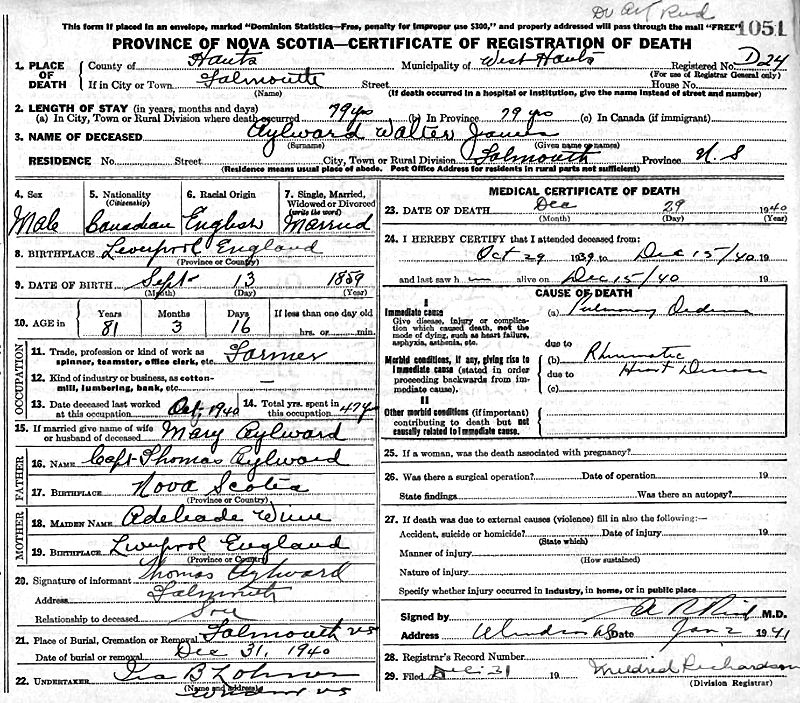 Dr Art Reid
This form if placed in an envelope, marked "Dominion Statistics—Free, penalty for improper use $300," and properly addressed will pass through the mail "FREE"
1051
PROVINCE OF NOVA SCOTIA—CERTIFICATE OF REGISTRATION OF DEATH
1. PLACE OF DEATH County of Hants Municipality of West Hants Registered No. D24
(For use of Registrar General only)
If in City or Town Falmouth Street House No.
(Name) (If death occurred in a hospital or institution, give the name instead of street and number)
2. LENGTH OF STAY (in years, months and days)
(a) In City, Town or Rural Division where death occurred 79 yrs (b) In Province 79 yrs (c) In Canada (if immigrant)
3. NAME OF DECEASED Aylward Walter James
(Surname) (Given name or names)
RESIDENCE No. Street City, Town or Rural Division Falmouth Province N.S
(Residence means usual place of abode. Post Office Address for residents in rural parts not sufficient)
4. Sex Male
5. Nationality (Citizenship) Canadian
6. Racial Origin English
7. Single, Married, Widowed or Divorced (write the word) Married
8. BIRTHPLACE Liverpool England
(Province or Country)
9. DATE OF BIRTH Sept 13 1859
(Month) (Day) (Year)
10. AGE in Years 81 Months 3 Days 16 If less than one day old hrs. or min.
OCCUPATION
11. Trade, profession or kind of work as spinner, teamster, office clerk, etc. Farmer
12. Kind of industry or business, as cotton-mill, lumbering, bank, etc. —
13. Date deceased last worked at this occupation Oct, 1940
14. Total yrs. spent in this occupation 47
15. If married give name of wife or husband of deceased Mary Aylward
FATHER
16. NAME Capt Thomas Aylward
17. BIRTHPLACE Nova Scotia
(Province or Country)
MOTHER
18. MAIDEN NAME Adeleade
19. BIRTHPLACE Liverpool England
(Province or Country)
20. Signature of informant Thomas Aylward
Address Falmouth
Relationship to deceased Son
21. Place of Burial, Cremation or Removal Falmouth NS
Date of burial or removal Dec 31, 1940
22. UNDERTAKER Ira B
(Name and address) Windsor NS
MEDICAL CERTIFICATE OF DEATH
23. DATE OF DEATH Dec 29 1940
(Month) (Day) (Year)
24. I HEREBY CERTIFY that I attended deceased from:
Oct 29 1939 to Dec 15/40 19
and last saw h m alive on Dec 15/40 19
CAUSE OF DEATH
I
Immediate cause
Give disease, injury or complication which caused death, not the mode of dying, such as heart failure, asphyxia, asthenia, etc.
(a) Pulmonary Oedema
due to
Morbid conditions, if any, giving rise to immediate cause (stated in order proceeding backwards from immediate cause).
(b) Rhumatic
due to Heart Disease
(c)
II
Other morbid conditions (if important) contributing to death but not causally related to immediate cause.
25. If a woman, was the death associated with pregnancy?
26. Was there a surgical operation? Date of operation 19
State findings Was there an autopsy?
27. If death was due to external causes (violence) fill in also the following:—
Accident, suicide or homicide? Date of injury 19
(State which)
Manner of injury
(How sustained)
Nature of injury
Specify whether injury occurred in industry, in home, or in public place
Signed by A R Reid M.D.
Address Windsor NS Date Jan 2 1941
28. Registrar's Record Number
29. Filed Dec 31 19 Mildred Richardson
(Division Registrar)